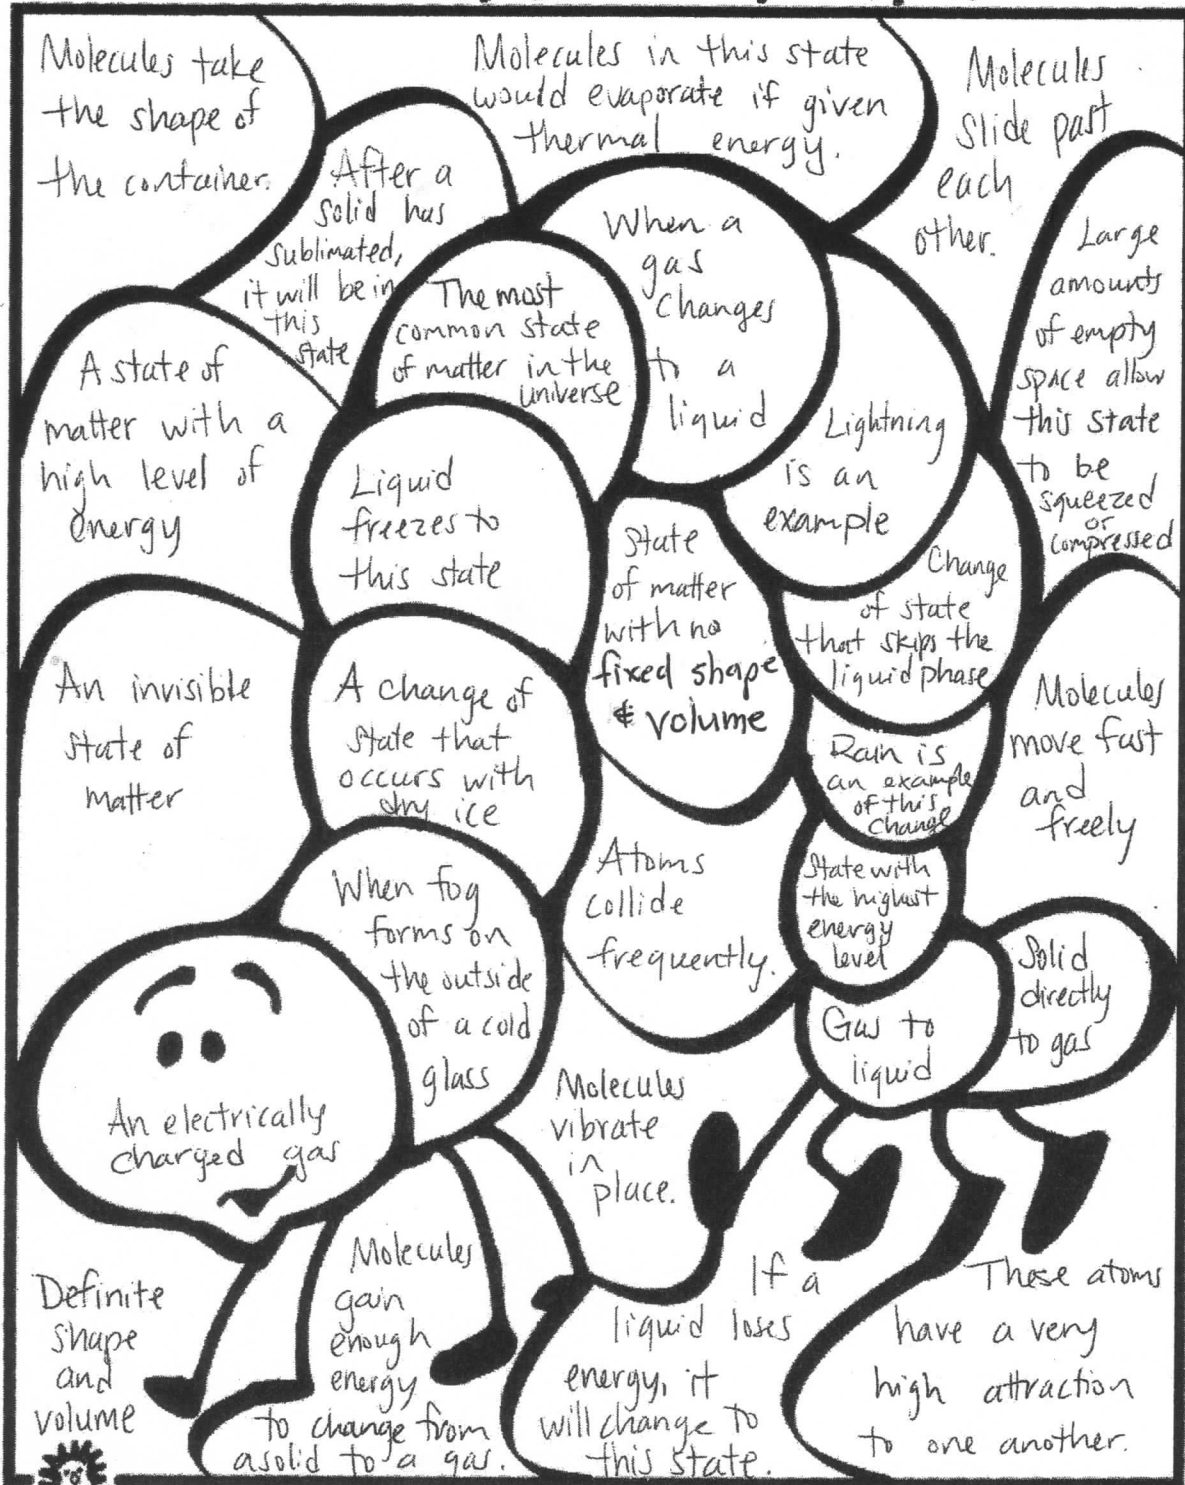 Molecules take
the shape of
the container.
Molecules in this state
would evaporate if given
thermal energy.
Molecules
slide past
each
other.
After a
solid has
sublimated,
it will be in
this
state
The most
common state
of matter in the
universe
When a
gas
changes
to a
liquid
Large
amounts
of empty
space allow
this state
to be
squeezed
or
compressed
A state of
matter with a
high level of
energy
Liquid
freezes to
this state
Lightning
is an
example
State
of matter
with no
fixed shape
& volume
Change
of state
that skips the
liquid phase
An invisible
state of
matter
A change of
state that
occurs with
dry ice
Rain is
an example
of this
change
Molecules
move fast
and
freely
When fog
forms on
the outside
of a cold
glass
Atoms
collide
frequently.
State with
the highest
energy
level
Solid
directly
to gas
Gas to
liquid
An electrically
charged gas
Molecules
vibrate
in
place.
Definite
shape
and
volume
Molecules
gain
enough
energy
to change from
a solid to a gas.
If a
liquid loses
energy, it
will change to
this state.
These atoms
have a very
high attraction
to one another.